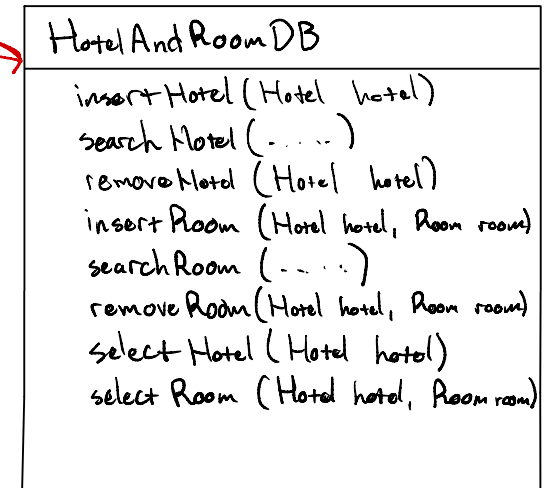 HotelAndRoomDB
insertHotel(Hotel hotel)
searchHotel(.....)
removeHotel(Hotel hotel)
insertRoom(Hotel hotel, Room room)
searchRoom(.....)
removeRoom(Hotel hotel, Room room)
selectHotel(Hotel hotel)
selectRoom(Hotel hotel, Room room)